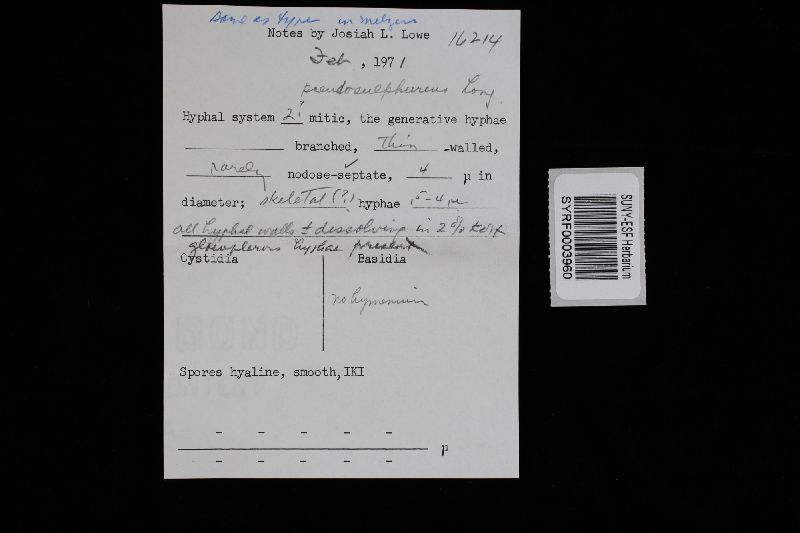 Same as type in Melzers
Notes by Josiah L. Lowe 16214
Feb, 1971
pseudosulphureus Long
Hyphal system 2? mitic, the generative hyphae
branched, thin -walled,
rarely nodose-septate, 4 µ in
diameter; skeletal (?) hyphae 1.5-4 µ
all hyphal walls ± dissolving in 2% KOH
gloeoplerous hyphae present
Cystidia Basidia
no hymenium
Spores hyaline, smooth, IKI
- - - - -
µ
- - - - -
SUNY-ESF Herbarium
SYRF0003960